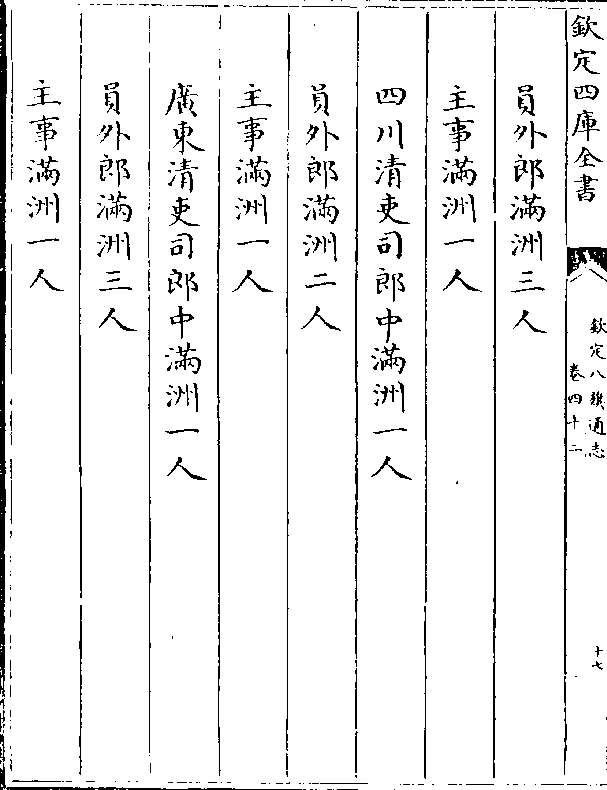 欽定四庫全書
欽定八旗通志
卷四十二
十七
員外郎滿洲三人
主事滿洲一人
四川清吏司郎中滿洲一人
員外郎滿洲二人
主事滿洲一人
廣東清吏司郎中滿洲一人
員外郎滿洲三人
主事滿洲一人